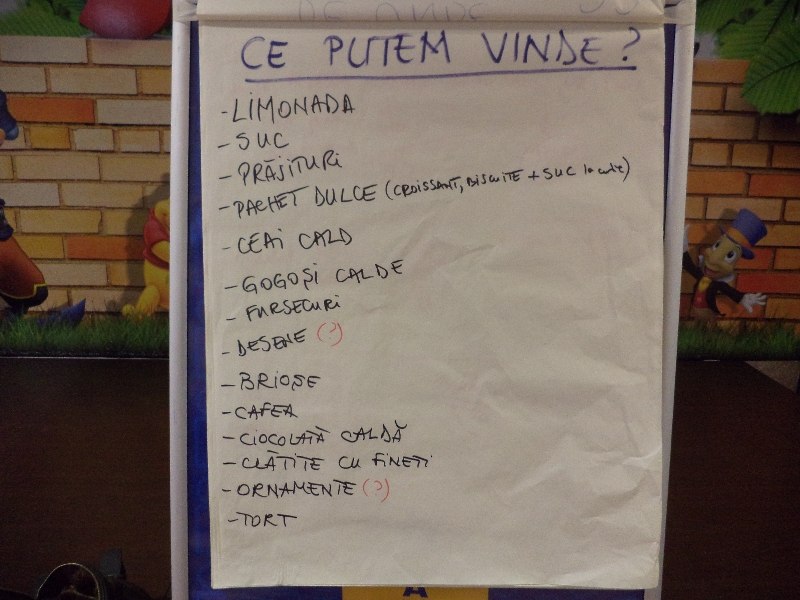 CE PUTEM VINDE?
- LIMONADA
- SUC
- PRĂJITURI
- PACHET DULCE (CROISSANT, BISCUITE + SUC la cutie)
- CEAI CALD
- GOGOȘI CALDE
- FURSECURI
- DESENE (?)
- BRIOȘE
- CAFEA
- CIOCOLATĂ CALDĂ
- CLĂTITE CU FINETI
- ORNAMENTE (?)
- TORT
A